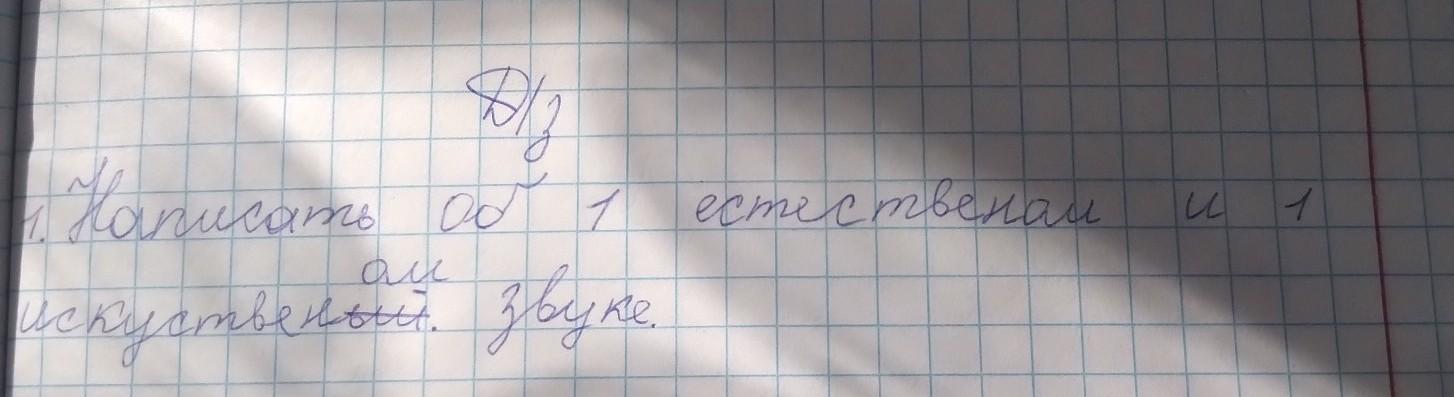 Д/з
1. Написать об 1 естественом и 1
ом
искуственый. звуке.